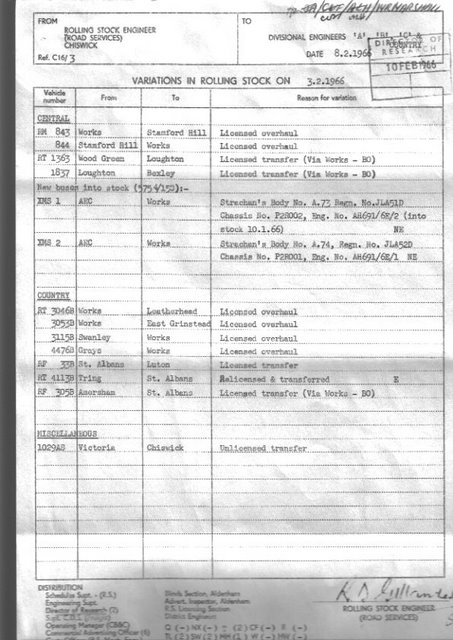 FROM
ROLLING STOCK ENGINEER
(ROAD SERVICES)
CHISWICK
Ref. C16/3
TO
DIVISIONAL ENGINEERS
DATE 8.2.1966
RESEARCH
10 FEB 1966
VARIATIONS IN ROLLING STOCK ON 3.2.1966
Vehicle number From To Reason for variation
CENTRAL
RM 843 Works Stamford Hill Licensed overhaul
844 Stamford Hill Works Licensed overhaul
RT 1363 Wood Green Loughton Licensed transfer (Via Works - BO)
1837 Loughton Bexley Licensed transfer (Via Works - BO)
New buses into stock (5754/152):-
XMS 1 AEC Works Strachan's Body No. A.73 Regn. No. JLA51D
Chassis No. P2R002, Eng. No. AH691/6E/2 (into
stock 10.1.66) NE
XMS 2 AEC Works Strachan's Body No. A.74, Regn. No. JLA52D
Chassis No. P2R001, Eng. No. AH691/6E/1 NE
COUNTRY
RT 3046B Works Leatherhead Licensed overhaul
3053B Works East Grinstead Licensed overhaul
3115B Swanley Works Licensed overhaul
4476B Grays Works Licensed overhaul
RF 33B St. Albans Luton Licensed transfer
RT 4113B Tring St. Albans Relicensed & transferred E
RF 305B Amersham St. Albans Licensed transfer (Via Works - BO)
MISCELLANEOUS
1029AS Victoria Chiswick Unlicensed transfer
DISTRIBUTION
Schedules Supt. - (R.S.)
Engineering Supt.
Director of Research (2)
Operating Manager (CB&C)
Commercial Advertising Officer (6)
Blinds Section, Aldenham
Advert. Inspector, Aldenham
R.S. Licensing Section
District Engineers
ROLLING STOCK ENGINEER
(ROAD SERVICES)